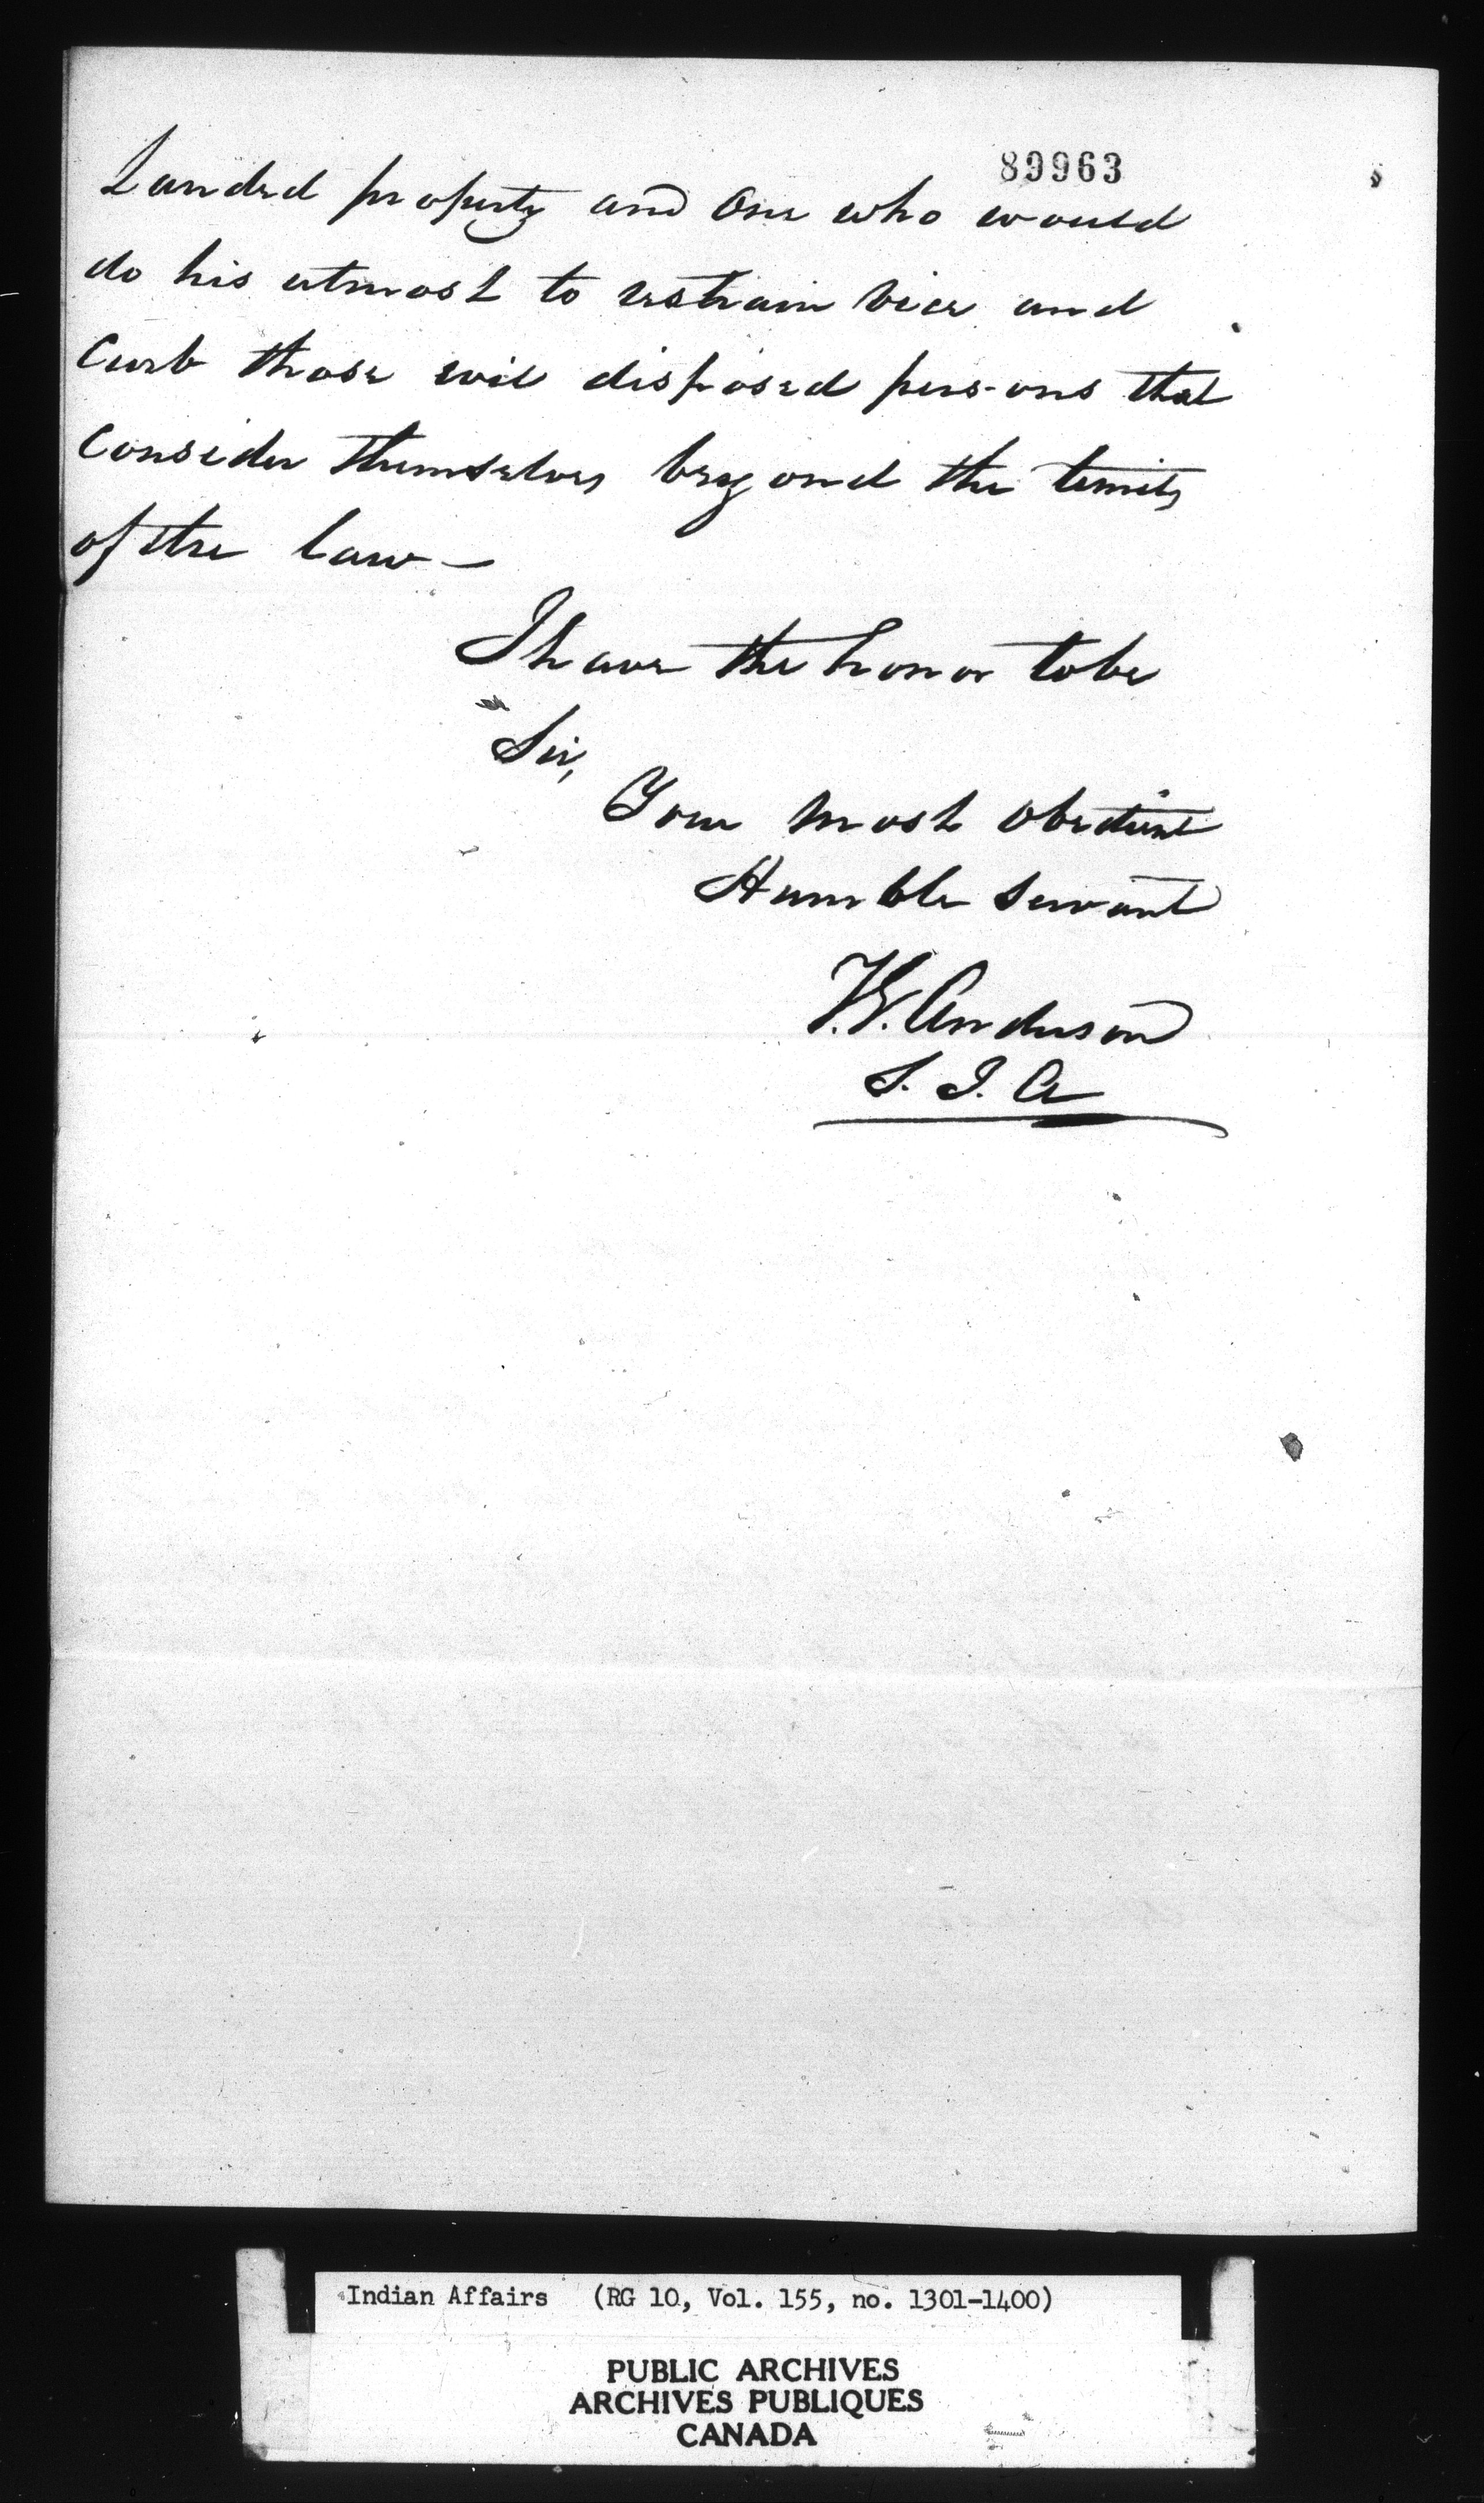 89963
Landed property and One who would
do his utmost to restrain vice and
Curb those evil disposed persons that
Consider themselves beyond the limits
of the law —
I have the honor to be
Sir,
Your most obedient
Humble servant
Anderson
S. I. A
Indian Affairs (RG 10, Vol. 155, no. 1301-1400)
PUBLIC ARCHIVES
ARCHIVES PUBLIQUES
CANADA